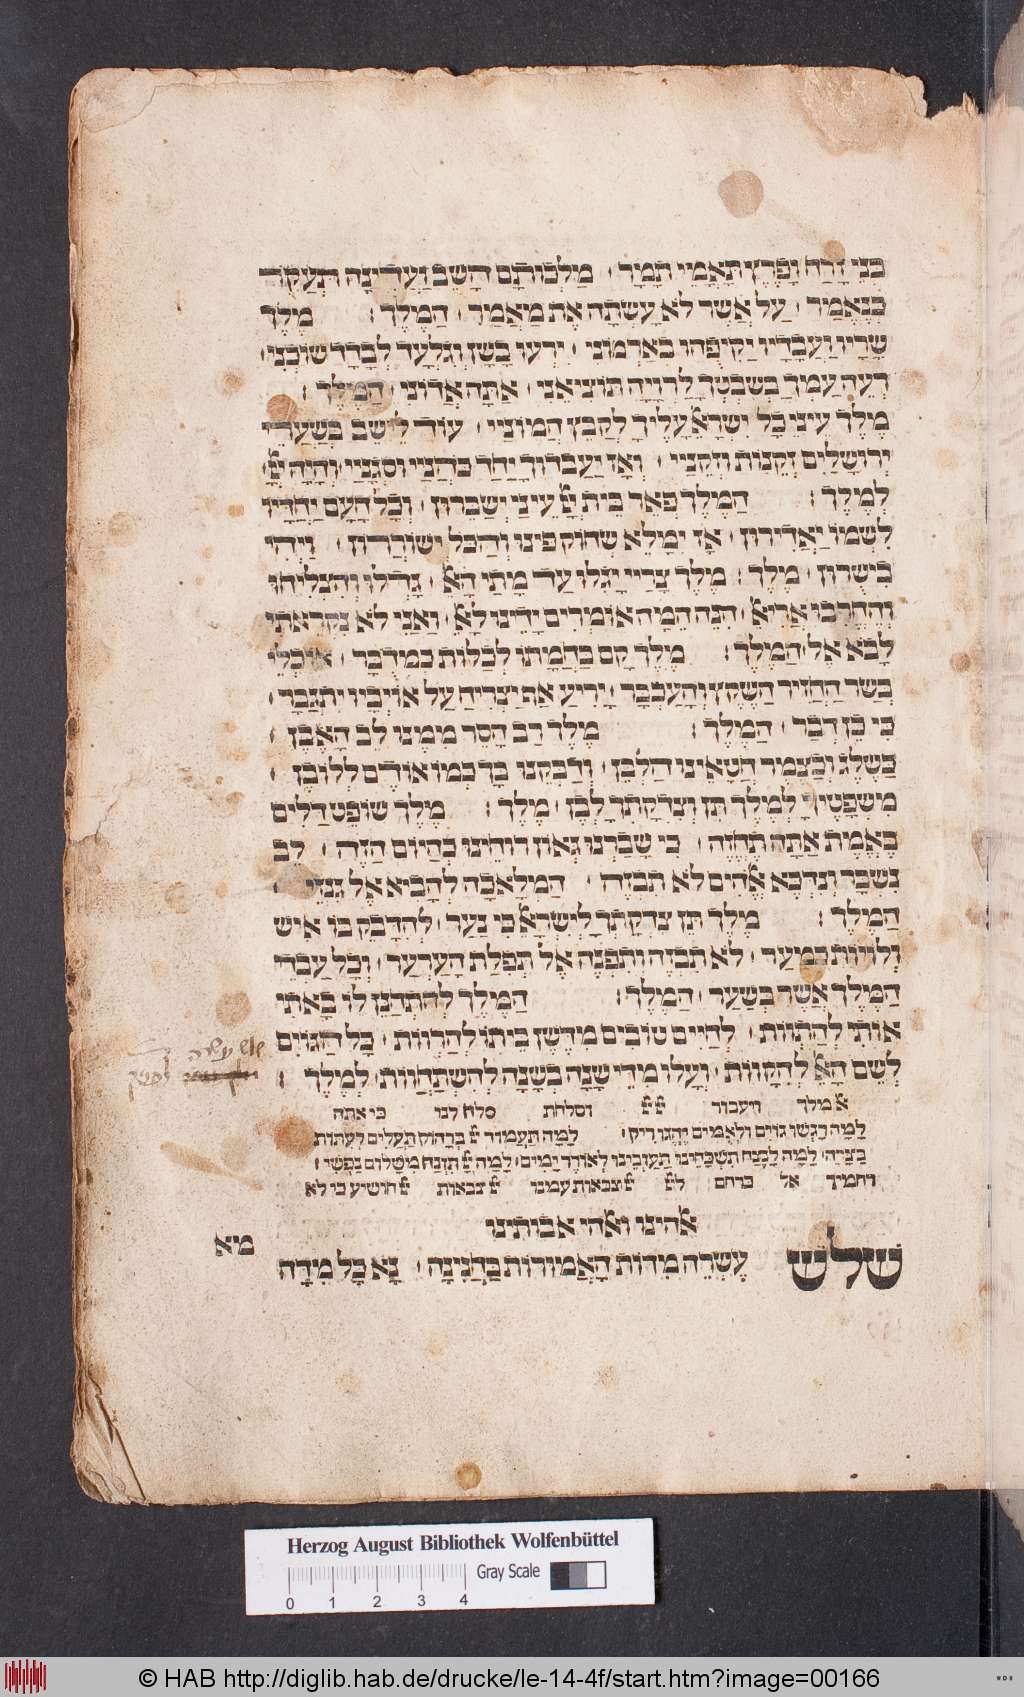 כִּבְנֵי זֶרַח וָפֶרֶץ תְּאָמֵי תָמָר ׃ מַלְכוּתָם חָשַׁב
בְּנֶאֱמַר ׃ עַל אֲשֶׁר לֹא עָשְׂתָה אֶת מַאֲמַר ׃ הַמֶּלֶךְ ׃ מֶלֶךְ
שָׂרָיו וַעֲבָדָיו ׃ יֵדְעוּ בָשָׁן וְגִלְעָד לְבָדָד שׁוֹכְנִי ׃
רְעֵה עַמְּךָ בְשִׁבְטְךָ לִרְוָיָה תּוֹצִיאֵנִי ׃ אַתָּה אֲדוֹנִי ׃ הַמֶּלֶךְ ׃
מֶלֶךְ עֵינֵי כָל יִשְׂרָאֵל עָלֶיךָ לְקַבֵּץ הֲמוֹנַיי ׃ עוֹד לֵישֵׁב בְּשַׁעֲרֵי
יְרוּשָׁלַיִם זְקֵנוֹת וּזְקֵנַיי ׃ וְאָז יַעַבְרוּךָ יַחַד כֹּהֲנַיי וּסְגָנַיי ׃ וְהָיָה
לְמֶלֶךְ ׃ הַמֶּלֶךְ פָּאֵר בֵּית עֵינַי יְשַׂבֵּרוּן ׃ וְכָל הָעָם יַחְדָּיו
לִשְׁמוֹ יַאְדִּירוּן ׃ אָז יִמָּלֵא שְׂחוֹק פִּינוּ וְהַכֹּל יְשׁוֹרֵרוּן ׃ וַיְהִי
בִישֻׁרוּן ׃ מֶלֶךְ ׃ מֶלֶךְ צָרַיי יָגְלוּ עַד מָתַי ׃ גָּדְלוּ וְהִצְלִיחוּ
הִנֵּה הֵמָּה אוֹמְרִים יָדֵינוּ ׃ וַאֲנִי לֹא נִקְרֵאתִי
לָבֹא אֶל הַמֶּלֶךְ ׃ מֶלֶךְ קָם בַּחֲמָתוֹ לְכַלּוֹת כְּמִדְבָּר ׃ אוֹכְלֵי
בְּשַׂר הַחֲזִיר הַשֶּׁקֶץ וְהָעַכְבָּר ׃ יָרִיעַ אַף יַצְרִיחַ עַל אוֹיְבָיו יִתְגַּבָּר ׃
כִּי כֵן דְּבַר ׃ הַמֶּלֶךְ ׃ מֶלֶךְ רַב הָסֵר מִמֶּנּוּ לֵב הָאֶבֶן ׃
כַּשֶּׁלֶג וְכַצֶּמֶר חֲטָאֵינוּ הַלְבֵּן ׃ וְדָבַקְנוּ בָךְ
מִשְׁפָּטֶיךָ לְמֶלֶךְ תֵּן וְצִדְקָתְךָ לְבֵן ׃ מֶלֶךְ ׃ מֶלֶךְ שׁוֹפֵט דַּלִּים
בֶּאֱמֶת אַתָּה תֶחֱזֶה ׃ כִּי שָׁבַרְנוּ גְאוֹן רוּחֵינוּ כְּהַיּוֹם הַזֶּה ׃ לֵב
נִשְׁבָּר וְנִדְכֶּא אֱלֹהִים לֹא תִבְזֶה ׃ הַמְּלָאכָה לְהָבִיא אֶל גִּנְזֵי ׃
הַמֶּלֶךְ ׃ מֶלֶךְ תֵּן צִדְקָתְךָ לְיִשְׂרָאֵל כִּי נַעַר ׃ לְהִדָּבֵק בּוֹ אִישׁ
וְלוֹיוֹת כְּמַעַר ׃ לֹא תִבְזֶה וּתְפַנֶּה אֶל תְּפִלַּת הָעַרְעָר ׃ וְכָל עַבְדֵי
הַמֶּלֶךְ אֲשֶׁר בְּשַׁעַר ׃ הַמֶּלֶךְ ׃ הַמֶּלֶךְ לְהִתְחַנֵּן לוֹ בָּאתִי
אוֹתִי לְהַחֲיוֹת ׃ לְחַיִּים טוֹבִים מִדֶּשֶׁן בֵּיתוֹ לְהַרְווֹת ׃ כָּל הַגּוֹיִם
לְשֵׁם לְהִקָּווֹת ׃ וְעָלוּ מִדֵּי שָׁנָה בְשָׁנָה לְהִשְׁתַּחֲווֹת ׃ לְמֶלֶךְ ׃
אל מלך ויעבור יי יי וסלחת סלח לנו כי אתה
לָמָּה רָגְשׁוּ גוֹיִם וּלְאֻמִּים יֶהְגּוּ רִיק ׃ לָמָה תַעֲמוֹד יי בְּרָחוֹק תַּעְלִים לְעִתּוֹת
בַּצָּרָה ׃ לָמָּה לָנֶצַח תִּשְׁכָּחֵינוּ תַּעַזְבֵינוּ לְאוֹרֶךְ יָמִים ׃ לָמָה יי תִּזְנַח מִשָּׁלוֹם נַפְשִׁי ׃
רחמיך אל ברחם לי״י יי צבאות עמנו יי צבאות יי הושיע כי לא
אלהינו ואלהי אבותינו
שלש עֶשְׂרֵה מִדּוֹת הָאֲמוּרוֹת בַּחֲנִינָה ׃ נָא כָּל מִדָּה
מא
Herzog August Bibliothek Wolfenbüttel
Gray Scale
0 1 2 3 4
© HAB http://diglib.hab.de/drucke/le-14-4f/start.htm?image=00166